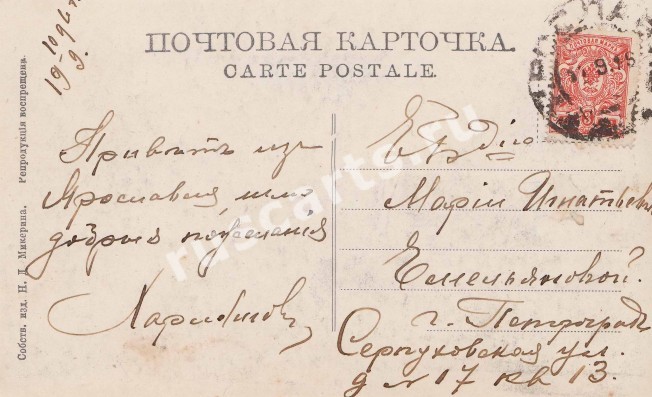 ПОЧТОВАЯ КАРТОЧКА.
CARTE POSTALE.
Собств. изд. Н. Д. Микерина. Репродукція воспрещена.
19 10/9 16
Привѣтъ изъ
Ярославля, шлю
добрыя пожеланія
Е. В-дію
Маріи Игнатьевн
Емельяновой.
г. Петроградъ
Серпуховская ул.
д № 17 кв 13.
ruscarts.ru